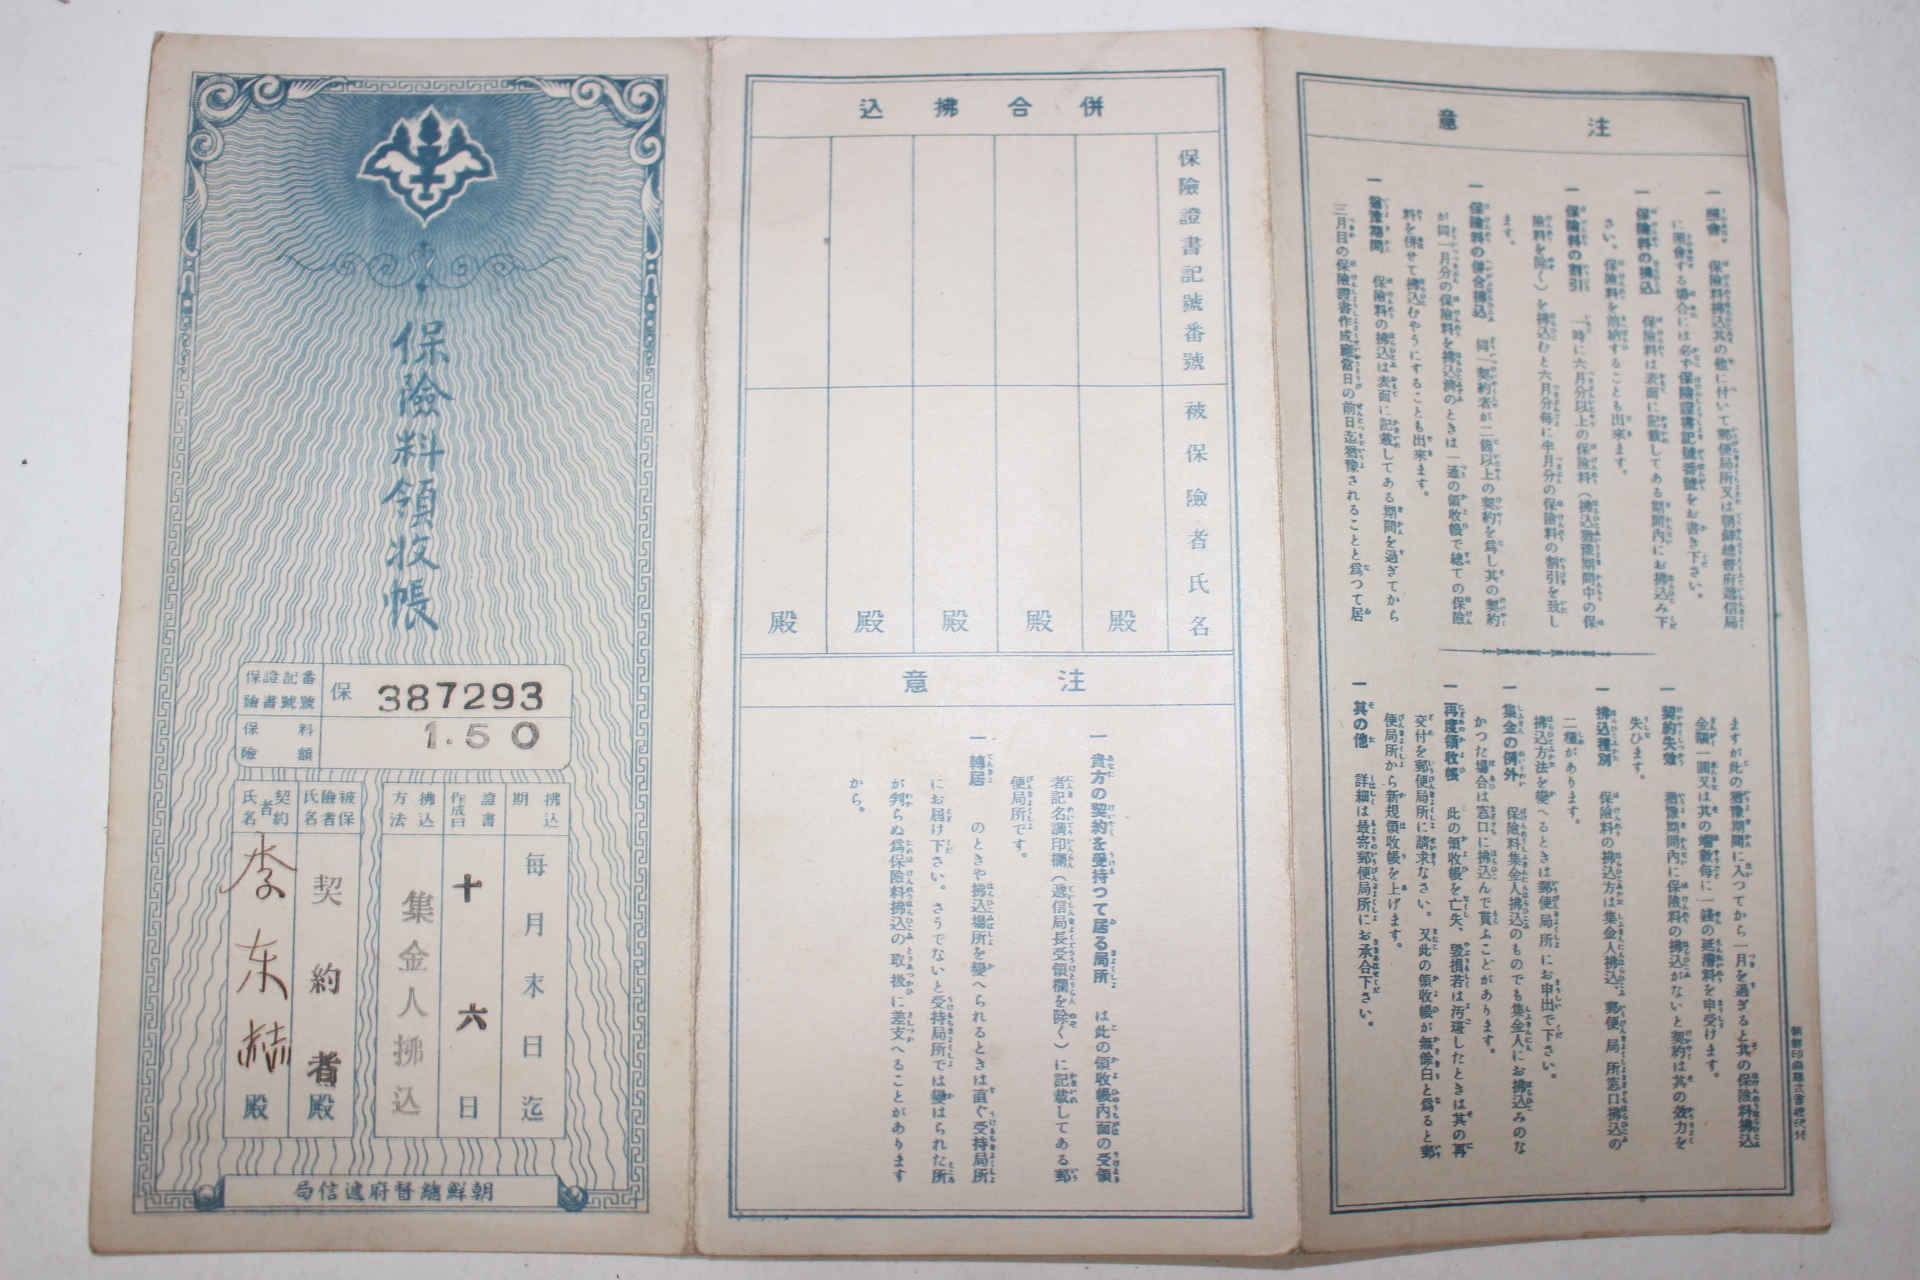 保險料領收帳
保險證書記號番號
保 387293
保險料額
1.50
拂込期
每月末日迄
證書作成日
十六日
拂込方法
集金人拂込
被保險者氏名
契約者殿
契約者氏名
李东赫殿
朝鮮總督府遞信局
併合拂込
保險證書記號番號
被保險者氏名
殿
殿
殿
殿
殿
注意
一 貴方の契約を受持つて居る局所 は此の領收帳內面の受領
者記名調印欄（遞信局長受領欄を除く）に記載してある郵
便局所です。
一 轉居 のときや拂込場所を變へられるときは直ぐ受持局所
にお届け下さい。さうでないと受持局所では變はられた所
が判らぬ爲保險料拂込の取扱に差支へることがあります
から。
注意
一 照會 保險料拂込其の他に付いて郵便局所又は朝鮮總督府遞信局
に照會する場合には必ず保險證書記號番號をお書き下さい。
一 保險料の拂込 保險料は表面に記載してある期間內にお拂込み下
さい。保險料を前納することも出來ます。
一 保險料の割引 一時に六月分以上の保險料（拂込猶豫期間中の保
險料を除く）を拂込むと六月分每に半月分の保險料の割引を致し
ます。
一 保險料の併合拂込 同一契約者が二箇以上の契約を爲し其の契約
が同一月分の保險料を拂込濟のときは一通の領收帳で總ての保險
料を併せて拂込むやうにすることも出來ます。
一 猶豫期間 保險料の拂込は表面に記載してある期間を過ぎてから
三月目の保險證書作成應當日の前日迄猶豫されることと爲つて居
ますが此の猶豫期間に入つてから一月を過ぎると其の保險料拂込
金額一圓又は其の端數每に一錢の延滯料を申受けます。
一 契約失效 猶豫期間內に保險料の拂込がないと契約は其の效力を
失ひます。
一 拂込種別 保險料の拂込方は集金人拂込、郵便局所窓口拂込の
二種があります。
拂込方法を變へるときは郵便局所にお申出で下さい。
一 集金の例外 保險料集金人拂込のものでも集金人にお拂込みのな
かつた場合は窓口に拂込んで貰ふことがあります。
一 再度領收帳 此の領收帳を亡失、毀損若は汚斑したときは其の再
交付を郵便局所に請求なさい。又此の領收帳が無餘白と爲ると郵
便局所から新規領收帳を上げます。
一 其の他 詳細は最寄郵便局所にお承合下さい。